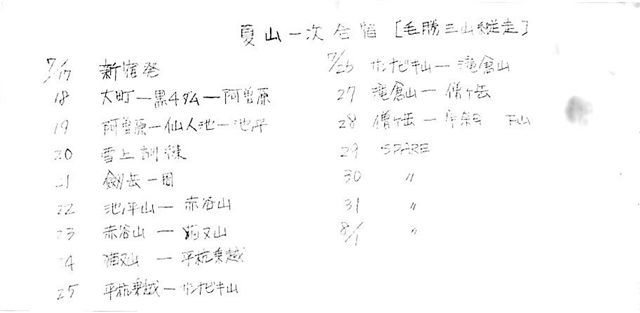 夏山一次合宿 [毛勝三山縦走]
7/17 新宿発
18 大町ー黒4ダムー阿曽原
19 阿曽原ー仙人池ー池平
20 雪上訓練
21 剱岳一周
22 池ノ平山ー赤谷山
23 赤谷山ー猫又山
24 猫又山ー平杭乗越
25 平杭乗越ーサンナビキ山
7/26 サンナビキ山ー滝倉山
27 滝倉山ー僧ヶ岳
28 僧ヶ岳ー宇奈月 下山
29 SPARE
30 〃
31 〃
8/1 〃